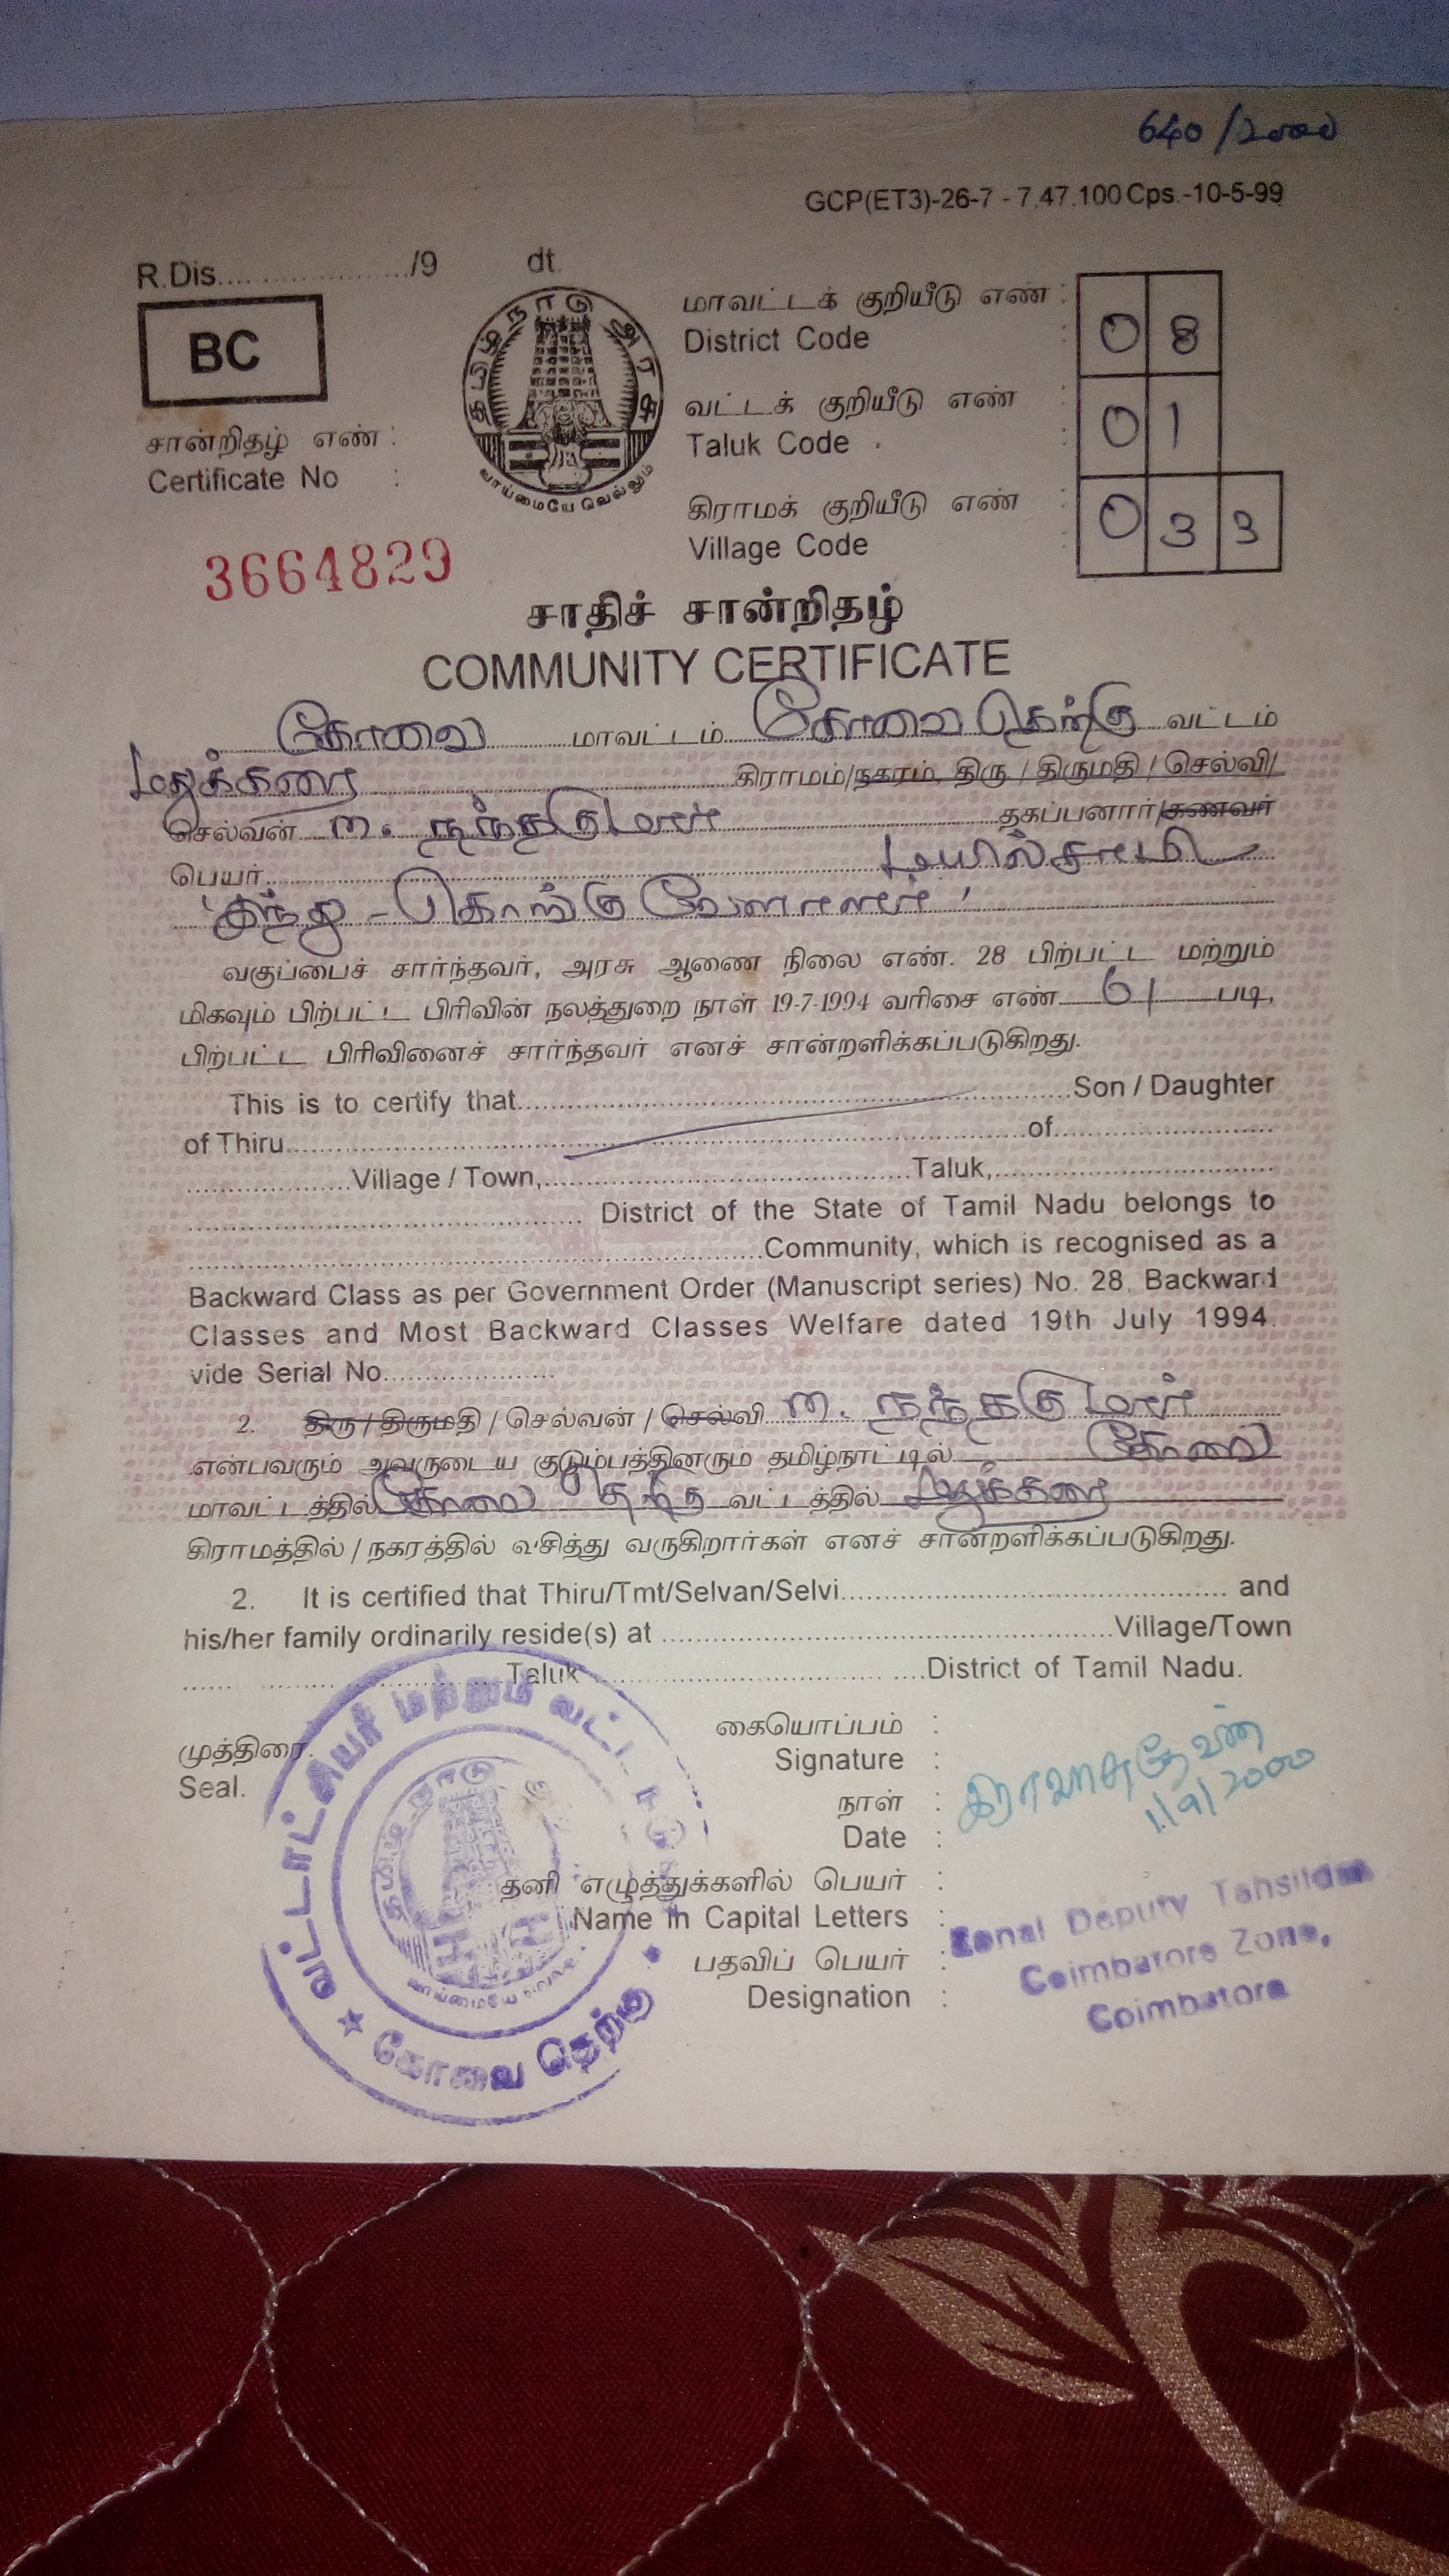 640/2000
GCP(ET3)-26-7 - 7,47,100 Cps.-10-5-99
R.Dis...................../9 dt.
BC
தமிழ்நாடு அரசு
வாய்மையே வெல்லும்
மாவட்டக் குறியீடு எண் :
District Code : 08
வட்டக் குறியீடு எண் :
Taluk Code : 01
கிராமக் குறியீடு எண் :
Village Code : 033
சான்றிதழ் எண் :
Certificate No :
3664829
சாதிச் சான்றிதழ்
COMMUNITY CERTIFICATE
கோவை மாவட்டம் கோவை தெற்கு வட்டம்
மதுக்கரை கிராமம்/நகரம், திரு / திருமதி / செல்வி/
செல்வன் ம. நந்தகுமார் தகப்பனார்/கணவர்
பெயர் மயில்சாமி
'இந்து - கொங்கு வேளாளர்'
வகுப்பைச் சார்ந்தவர், அரசு ஆணை நிலை எண். 28 பிற்பட்ட மற்றும்
மிகவும் பிற்பட்ட பிரிவின் நலத்துறை நாள் 19-7-1994 வரிசை எண் 61 படி,
பிற்பட்ட பிரிவினைச் சார்ந்தவர் எனச் சான்றளிக்கப்படுகிறது.
This is to certify that....................Son / Daughter
of Thiru....................of....................
....................Village / Town,....................Taluk,....................
.................... District of the State of Tamil Nadu belongs to
....................Community, which is recognised as a
Backward Class as per Government Order (Manuscript series) No. 28, Backward
Classes and Most Backward Classes Welfare dated 19th July 1994.
vide Serial No....................
2. திரு / திருமதி / செல்வன் / செல்வி ம. நந்தகுமார்
என்பவரும் அவருடைய குடும்பத்தினரும் தமிழ்நாட்டில் கோவை
மாவட்டத்தில் கோவை தெற்கு வட்டத்தில் மதுக்கரை
கிராமத்தில் / நகரத்தில் வசித்து வருகிறார்கள் எனச் சான்றளிக்கப்படுகிறது.
2. It is certified that Thiru/Tmt/Selvan/Selvi.................... and
his/her family ordinarily reside(s) at ....................Village/Town
....................Taluk ....................District of Tamil Nadu.
முத்திரை.
Seal.
கையொப்பம் :
Signature :
நாள் :
Date : 1/9/2000
தனி எழுத்துக்களில் பெயர் :
Name in Capital Letters :
பதவிப் பெயர் :
Designation :
Zonal Deputy Tahsildar
Coimbatore Zone,
Coimbatore
வட்டாட்சியர் மற்றும்
கோவை தெற்கு